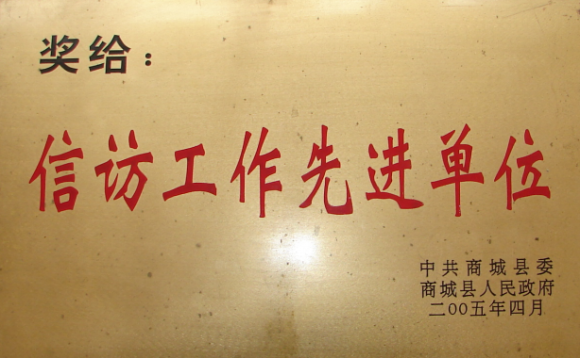 奖给：
信访工作先进单位
中共商城县委
商城县人民政府
二00五年四月